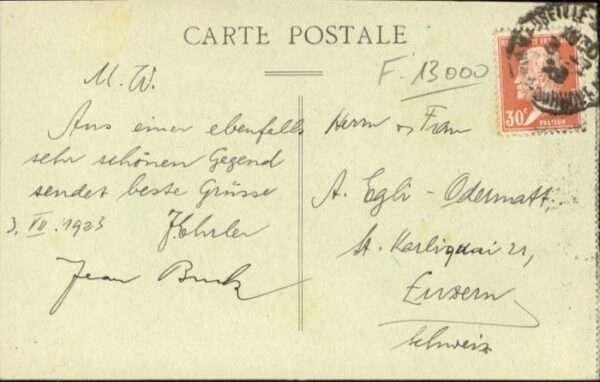 CARTE POSTALE
F. 13000
M. W.
Aus einer ebenfalls
sehr schönen Gegend
sendet beste Grüsse
3. VII. 1923
Jean
Herrn & Frau
A. Egli-Odermatt.
St. Karliquai 21,
Luzern
Schweiz
30c
PASTEUR
MARSEILLE